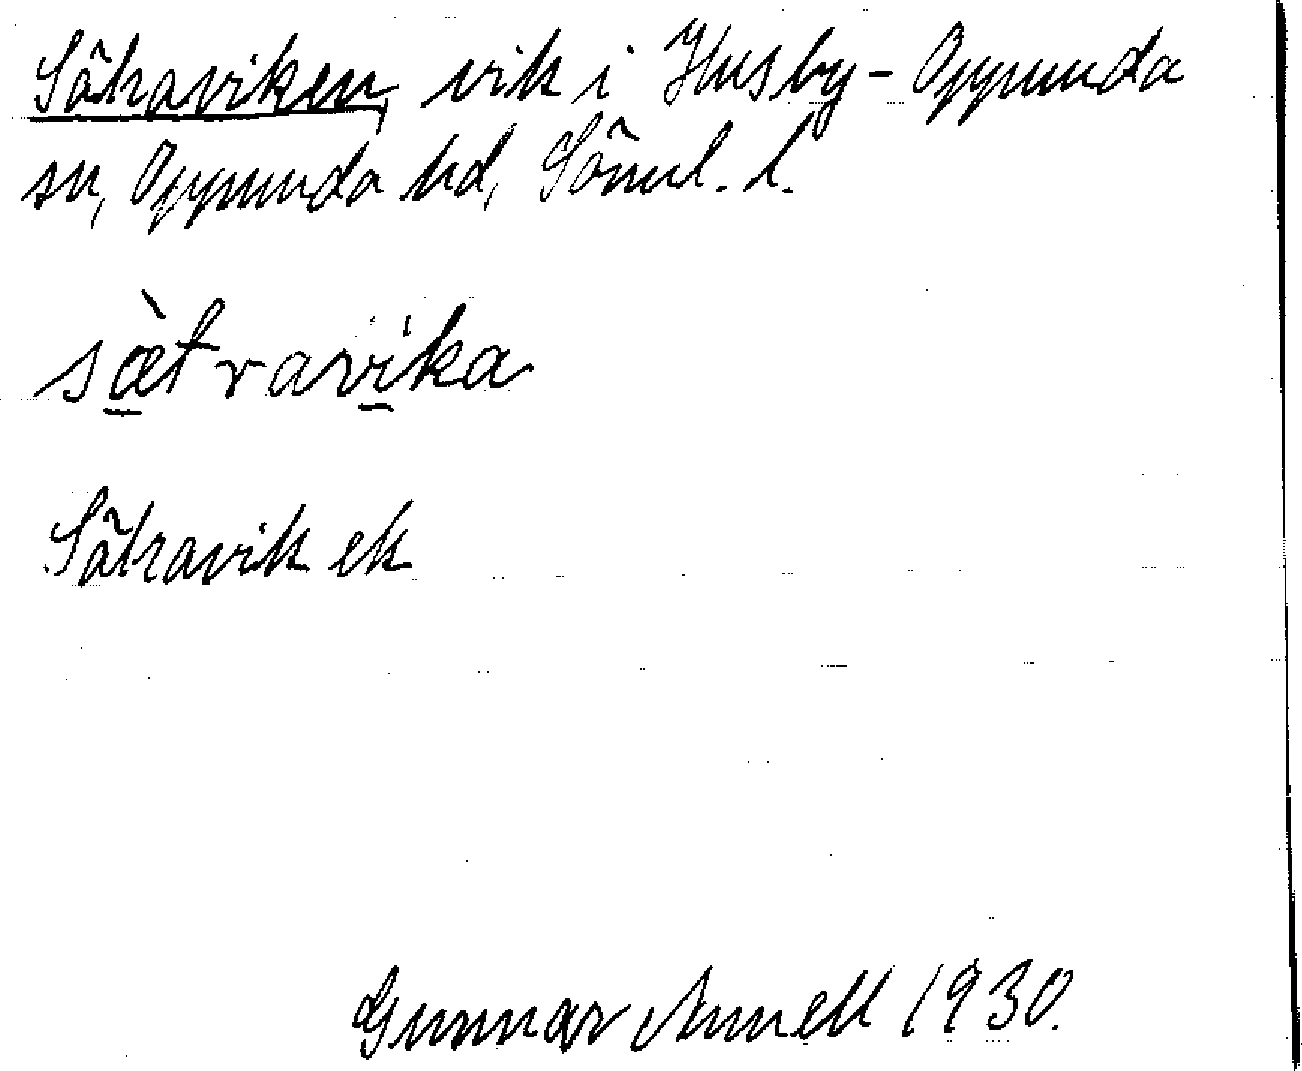 Sätraviken, vik i Husby-Oppunda
sn, Oppunda hd, Söml. l.
sæ̀travika
Sätravik ek
Gunnar Annell 1930.